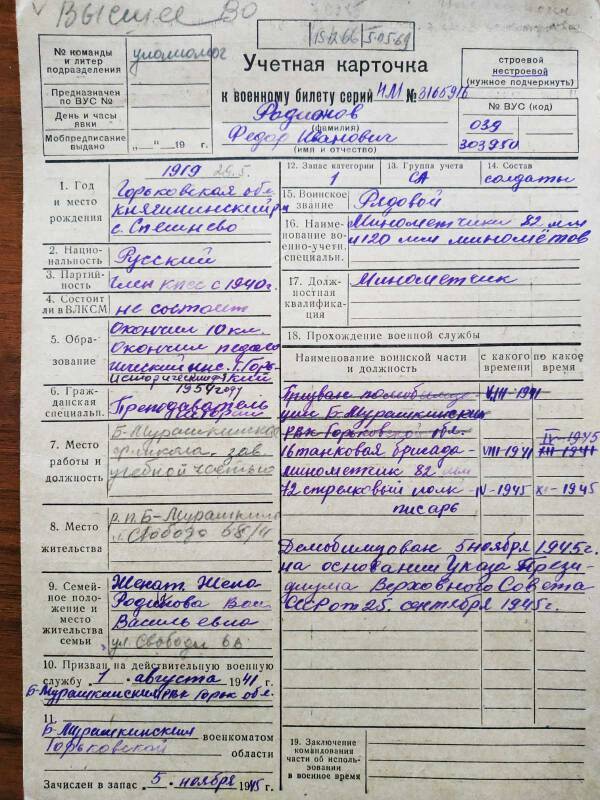 Высшее ВО
15.12.66 5.05.69
№ команды
и литер
подразделения
Предназначен
по ВУС №
День и часы
явки
Мобпредписание
выдано
„ “ 19 г.
Учетная карточка
к военному билету серии НМ № 3165916
Родионов
(фамилия)
Федор Иванович
(имя и отчество)
строевой
нестроевой
(нужное подчеркнуть)
№ ВУС (код)
039
303950
1. Год
и место
рождения
1919
Горьковская обл.
Княгининский р-н
с. Спешнево
2. Нацио-
нальность
Русский
3. Партий-
ность
член КПСС с 1940г.
4. Состоит
ли в ВЛКСМ
не состоит
5. Обра-
зование
Окончил 10 кл.
Окончил педаго
гический инс. г. Горь
кий
исторический
1954 году
6. Граж-
данская
специальн.
Преподаватель
7. Место
работы и
должность
Б-Мурашкинская
школа, зав.
учебной частью
8. Место
жительства
р.п. Б-Мурашкино
Свобода
9. Семей-
ное поло-
жение и
место
жительства
семьи
Женат Жена
Родионова
Васильевна
ул. Свободы
10. Призван на действительную военную
службу 1 августа 1941 г.
Б-Мурашкинский РВК Горьк обл.
11. Б-Мурашкинский
военкоматом
Горьковской
области
Зачислен в запас 5 ноября 1945 г.
12. Запас категории
1
13. Группа учета
СА
14. Состав
солдаты
15. Воинское
звание
Рядовой
16. Наиме-
нование во-
енно-учетн.
специальн.
Минометчики 82 мм
и 120 мм миномётов
17. Долж-
ностная
квалифика-
ция
Минометчик
18. Прохождение военной службы
Наименование воинской части
и должность
с какого
времени
по какое
время
Призван по мобилиза VIII-1941
ции Б-Мурашкинским
РВК Горьковской обл.
IV-1945
16 танковая бригада- VIII-1941 XII-1941
минометчик 82 мм
72 стрелковый полк- IV-1945 XI-1945
писарь
Демобилизован 5 ноября 1945г.
на основании Указа Прези
диума Верховного Совета
СССР от 25 сентября 1945г.
19. Заключение
командования
части об исполь-
зовании
в военное время